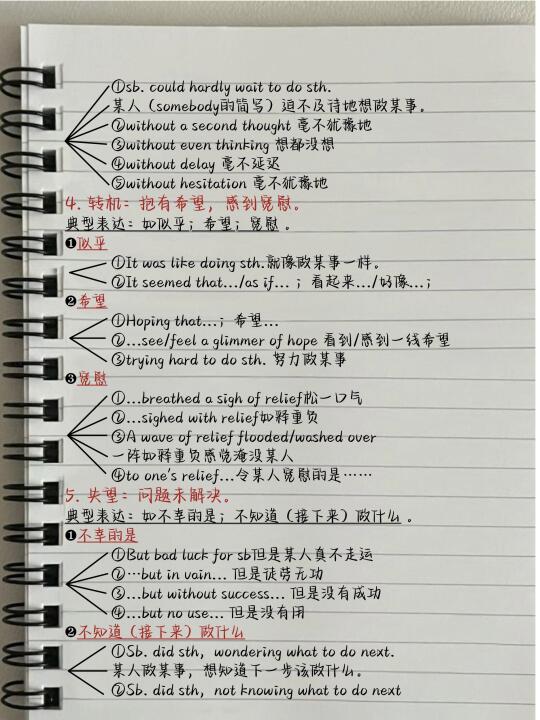 ①sb. could hardly wait to do sth.
某人（somebody的简写）迫不及待地想做某事。
②without a second thought 毫不犹豫地
③without even thinking 想都没想
④without delay 毫不延迟
⑤without hesitation 毫不犹豫地
4. 转机：抱有希望，感到宽慰。
典型表达：如似乎；希望；宽慰。
❶似乎
①It was like doing sth.就像做某事一样。
②It seemed that.../as if...；看起来.../好像...；
❷希望
①Hoping that...；希望...
②...see/feel a glimmer of hope 看到/感到一线希望
③trying hard to do sth. 努力做某事
❸宽慰
①...breathed a sigh of relief松一口气
②...sighed with relief如释重负
③A wave of relief flooded/washed over
一阵如释重负感觉淹没某人
④to one's relief...令某人宽慰的是……
5. 失望：问题未解决。
典型表达：如不幸的是；不知道（接下来）做什么。
❶不幸的是
①But bad luck for sb但是某人真不走运
②…but in vain... 但是徒劳无功
③...but without success... 但是没有成功
④...but no use... 但是没有用
❷不知道（接下来）做什么
①Sb. did sth, wondering what to do next.
某人做某事，想知道下一步该做什么。
②Sb. did sth, not knowing what to do next